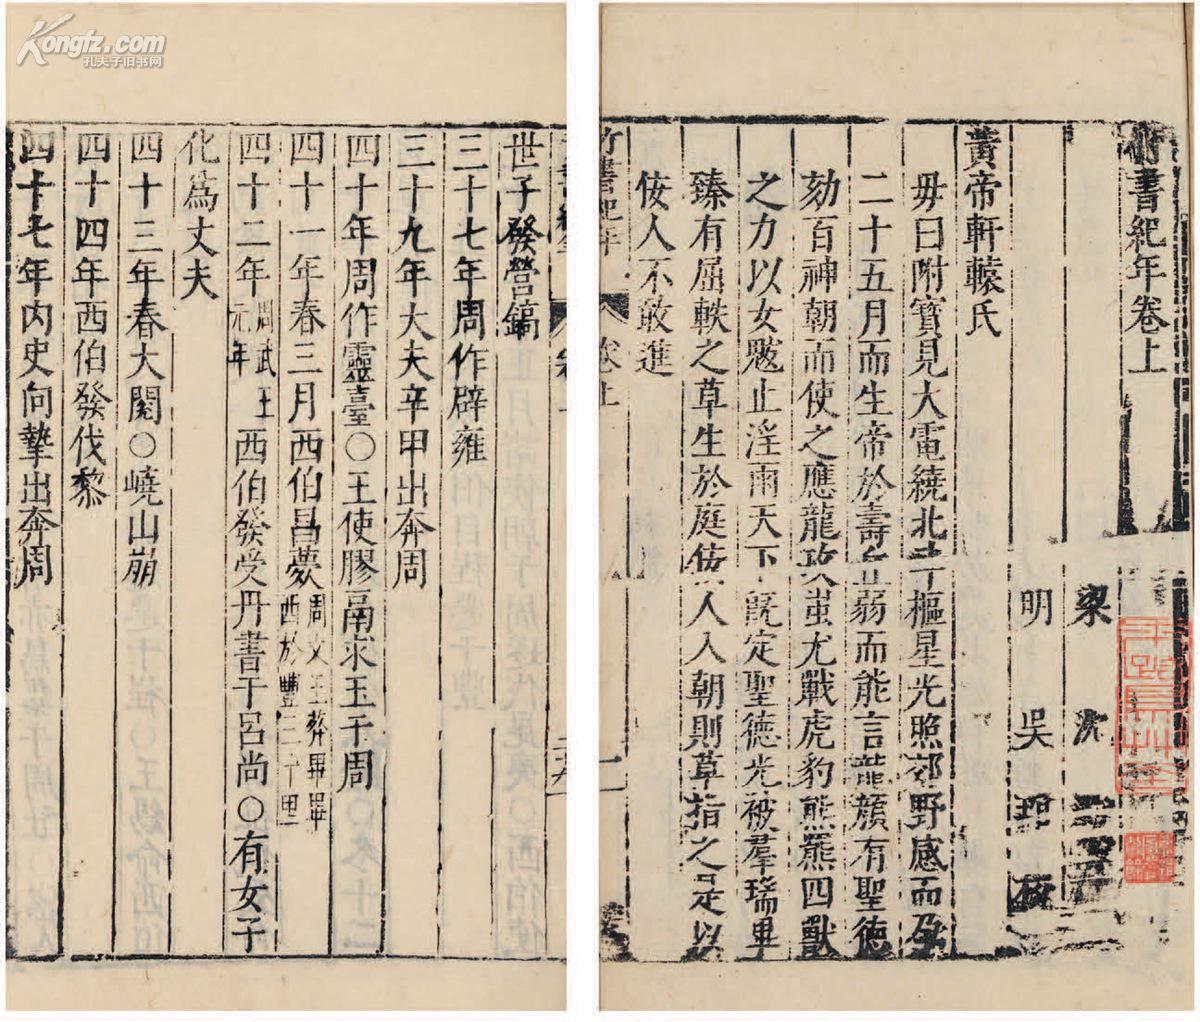 竹書紀年卷上
梁 沈
明 吳 琯 校
黃帝軒轅氏
母曰附寶見大電繞北斗樞星光照郊野感而孕
二十五月而生帝於壽丘弱而能言龍顏有聖德
劾百神朝而使之應龍攻蚩尤戰虎豹熊羆四獸
之力以女魃止淫雨天下既定聖德光被羣瑞畢
臻有屈軼之草生於庭佞人入朝則草指之是以
佞人不敢進
竹書紀年 卷上 一
世子發營鎬
三十七年周作辟雍
三十九年大夫辛甲出奔周
四十年周作靈臺○王使膠鬲求玉于周
四十一年春三月西伯昌薨周文王葬畢畢西於豐三十里
四十二年周武王元年西伯發受丹書于呂尚○有女子
化爲丈夫
四十三年春大閱○嶢山崩
四十四年西伯發伐黎
四十七年內史向摯出奔周
Kongfz.com
孔夫子旧书网